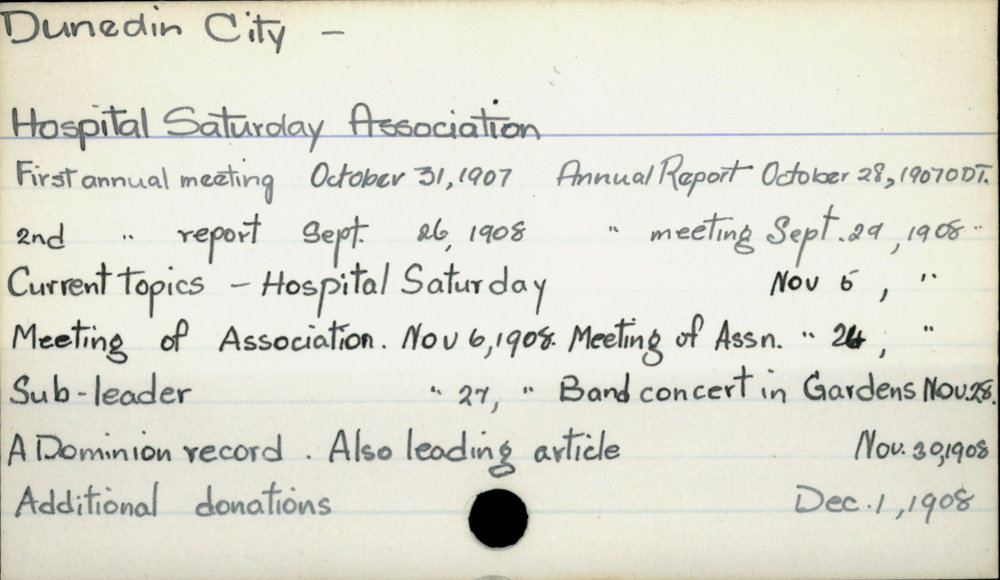 Dunedin City -
Hospital Saturday Association
First annual meeting October 31, 1907 Annual Report October 28, 1907 ODT.
2nd " report Sept. 26, 1908 " meeting Sept. 29, 1908 "
Current Topics - Hospital Saturday Nov 5, "
Meeting of Association. Nov 6, 1908. Meeting of Assn. " 24, "
Sub-leader " 27, " Band concert in Gardens Nov. 28.
A Dominion record. Also leading article Nov. 30, 1908
Additional donations Dec. 1, 1908